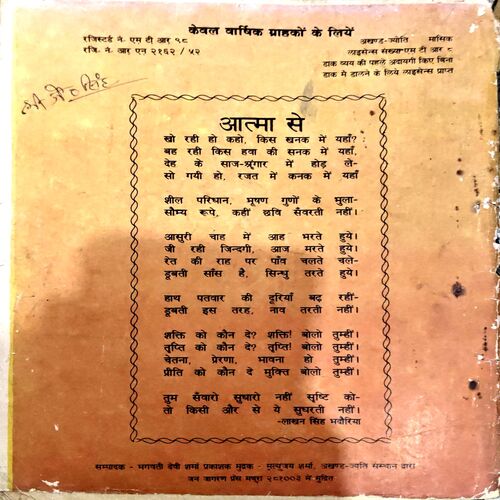 केवल वार्षिक ग्राहकों के लिये
रजिस्टर्ड नं. एस टी आर १८
रजि. नं. आर एन २१६२ / ५२
अखण्ड-ज्योति मासिक
लाइसेन्स संख्या-एस टी आर ८
डाक व्यय की पहले अदायगी किए बिना
डाक में डालने के लिये लाइसेन्स प्राप्त
आत्मा से
खो रही हो कहो, किस खनक में यहाँ?
बह रही किस हवा की सनक में यहाँ,
देह के साज-श्रृंगार में होड़ ले-
सो गयी हो, रजत में कनक में यहाँ
शील परिधान, भूषण गुणों के भुला-
सौम्य रूपे, कहीं छवि सँवरती नहीं।
आसुरी चाह में आह भरते हुये।
जी रही जिन्दगी, आज मरते हुये।
रेत की राह पर पाँव चलते चले-
डूबती साँस है, सिन्धु तरते हुये।
हाथ पतवार की दूरियाँ बढ़ रहीं-
डूबती इस तरह, नाव तरती नहीं।
शक्ति को कौन दे? शक्ति! बोलो तुम्हीं।
तृप्ति को कौन दे? तृप्ति! बोलो तुम्हीं।
चेतना, प्रेरणा, भावना हो तुम्हीं।
प्रीति को कौन दे मुक्ति बोलो तुम्हीं।
तुम सँवारो सुधारो नहीं सृष्टि को-
तो किसी और से ये सुधरती नहीं।
-लाखन सिंह भदौरिया
सम्पादक - भगवती देवी शर्मा प्रकाशक मुद्रक - मृत्युंजय शर्मा, अखण्ड-ज्योति संस्थान द्वारा
जन जागरण प्रेस मथुरा २८१००३ में मुद्रित